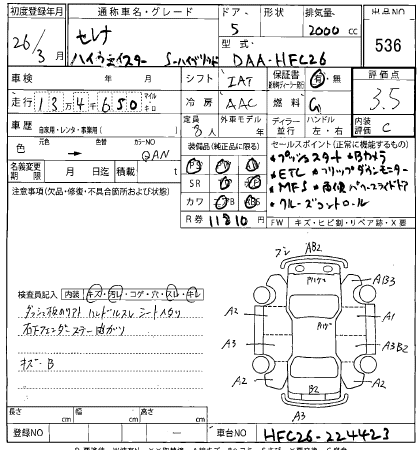 初度登録年月 通称車名・グレード ドア 形状 排気量 出品NO
26/3月 セレナ 5 2000 cc 536
ハイウェイスター S-ハイブリッド 型式 DAA-HFC26
車検 年 月 シフト IAT 保証書 有・無 評価点
走行 134650 マイル キロ 冷房 AAC 燃料 G 3.5
車歴 自家用・レンタ・事業用( ) 定員 8人 外車モデル ディーラー 並行 ハンドル 左・右 内装評価 C
色 元色 色替 カラーNO QAN 装備品(純正品に限る) セールスポイント(正常に機能するもの)
名義変更期限 月 日迄 積載 t PS PW
*プッシュスタート *Bカメラ
*ETC *フリップダウンモニター
注意事項(欠品・修復・不具合箇所および状態) SR AW
*MFS *両側パワースライドドア
カワ PS ABS
*クルーズコントロール
R券 11810 円 FW キズ・ヒビ割・リペア跡・X
検査員記入 内装 キズ・汚レ・コゲ・穴・スレ・キレ
ハンドルスレ シートスクリ
キズ・B
AB2
AB3
A2 A1
A3 A3B2
A2 A2
B2
A3
長さ cm 幅 cm 高さ cm
登録NO 車台NO HFC26-224423